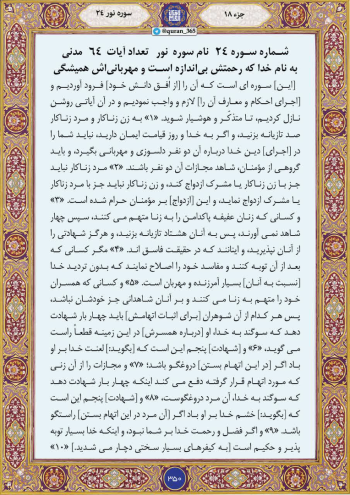 جزء ۱۸
سوره نور ۲۴
@quran_365
شماره سوره ۲۴ نام سوره نور تعداد آیات ۶۴ مدنی
به نام خدا که رحمتش بی‌اندازه است و مهربانی‌اش همیشگی
[این] سوره ای است که آن را [از اُفق دانش خود] فرود آوردیم و
[اجرای احکام و معارف آن را] لازم و واجب نمودیم و در آن آیاتی روشن
نازل کردیم، تا متذکّر و هوشیار شوید. «۱» به زن زناکار و مرد زناکار
صد تازیانه بزنید، و اگر به خدا و روز قیامت ایمان دارید، نباید شما را
در [اجرای] دین خدا درباره آن دو نفر دلسوزی و مهربانی بگیرد، و باید
گروهی از مؤمنان، شاهد مجازات آن دو نفر باشند. «۲» مرد زناکار نباید
جز با زن زناکار یا مشرک ازدواج کند، و زن زناکار نباید جز با مرد زناکار
یا مشرک ازدواج نماید، و این [ازدواج] بر مؤمنان حرام شده است. «۳»
و کسانی که زنان عفیفه پاکدامن را به زنا متهم می کنند، سپس چهار
شاهد نمی آورند، پس به آنان هشتاد تازیانه بزنید، و هرگز شهادتی را
از آنان نپذیرید، و اینانند که در حقیقت فاسق اند. «۴» مگر کسانی که
بعد از آن توبه کنند و مفاسد خود را اصلاح نمایند که بدون تردید خدا
[نسبت به آنان] بسیار آمرزنده و مهربان است. «۵» و کسانی که همسران
خود را متهم به زنا می کنند و بر آنان شاهدانی جز خودشان نباشد،
پس هر کدام از آن شوهران [برای اثبات اتهامش] باید چهار بار شهادت
دهد که سوگند به خدا او [درباره همسرش] در این زمینه قطعاً راست
می گوید، «۶» و [شهادت] پنجم این است که [بگوید:] لعنت خدا بر او
باد اگر [در این اتهام بستن] دروغگو باشد؛ «۷» و مجازات را از آن زنی
که مورد اتهام قرار گرفته دفع می کند اینکه چهار بار شهادت دهد
که سوگند به خدا، آن مرد دروغگوست، «۸» و [شهادت] پنجم این است
که [بگوید:] خشم خدا بر او باد اگر [آن مرد در این اتهام بستن] راستگو
باشد. «۹» و اگر فضل و رحمت خدا بر شما نبود، و اینکه خدا بسیار توبه
پذیر و حکیم است [به کیفرهای بسیار سختی دچار می شدید.] «۱۰»
۳۵۰